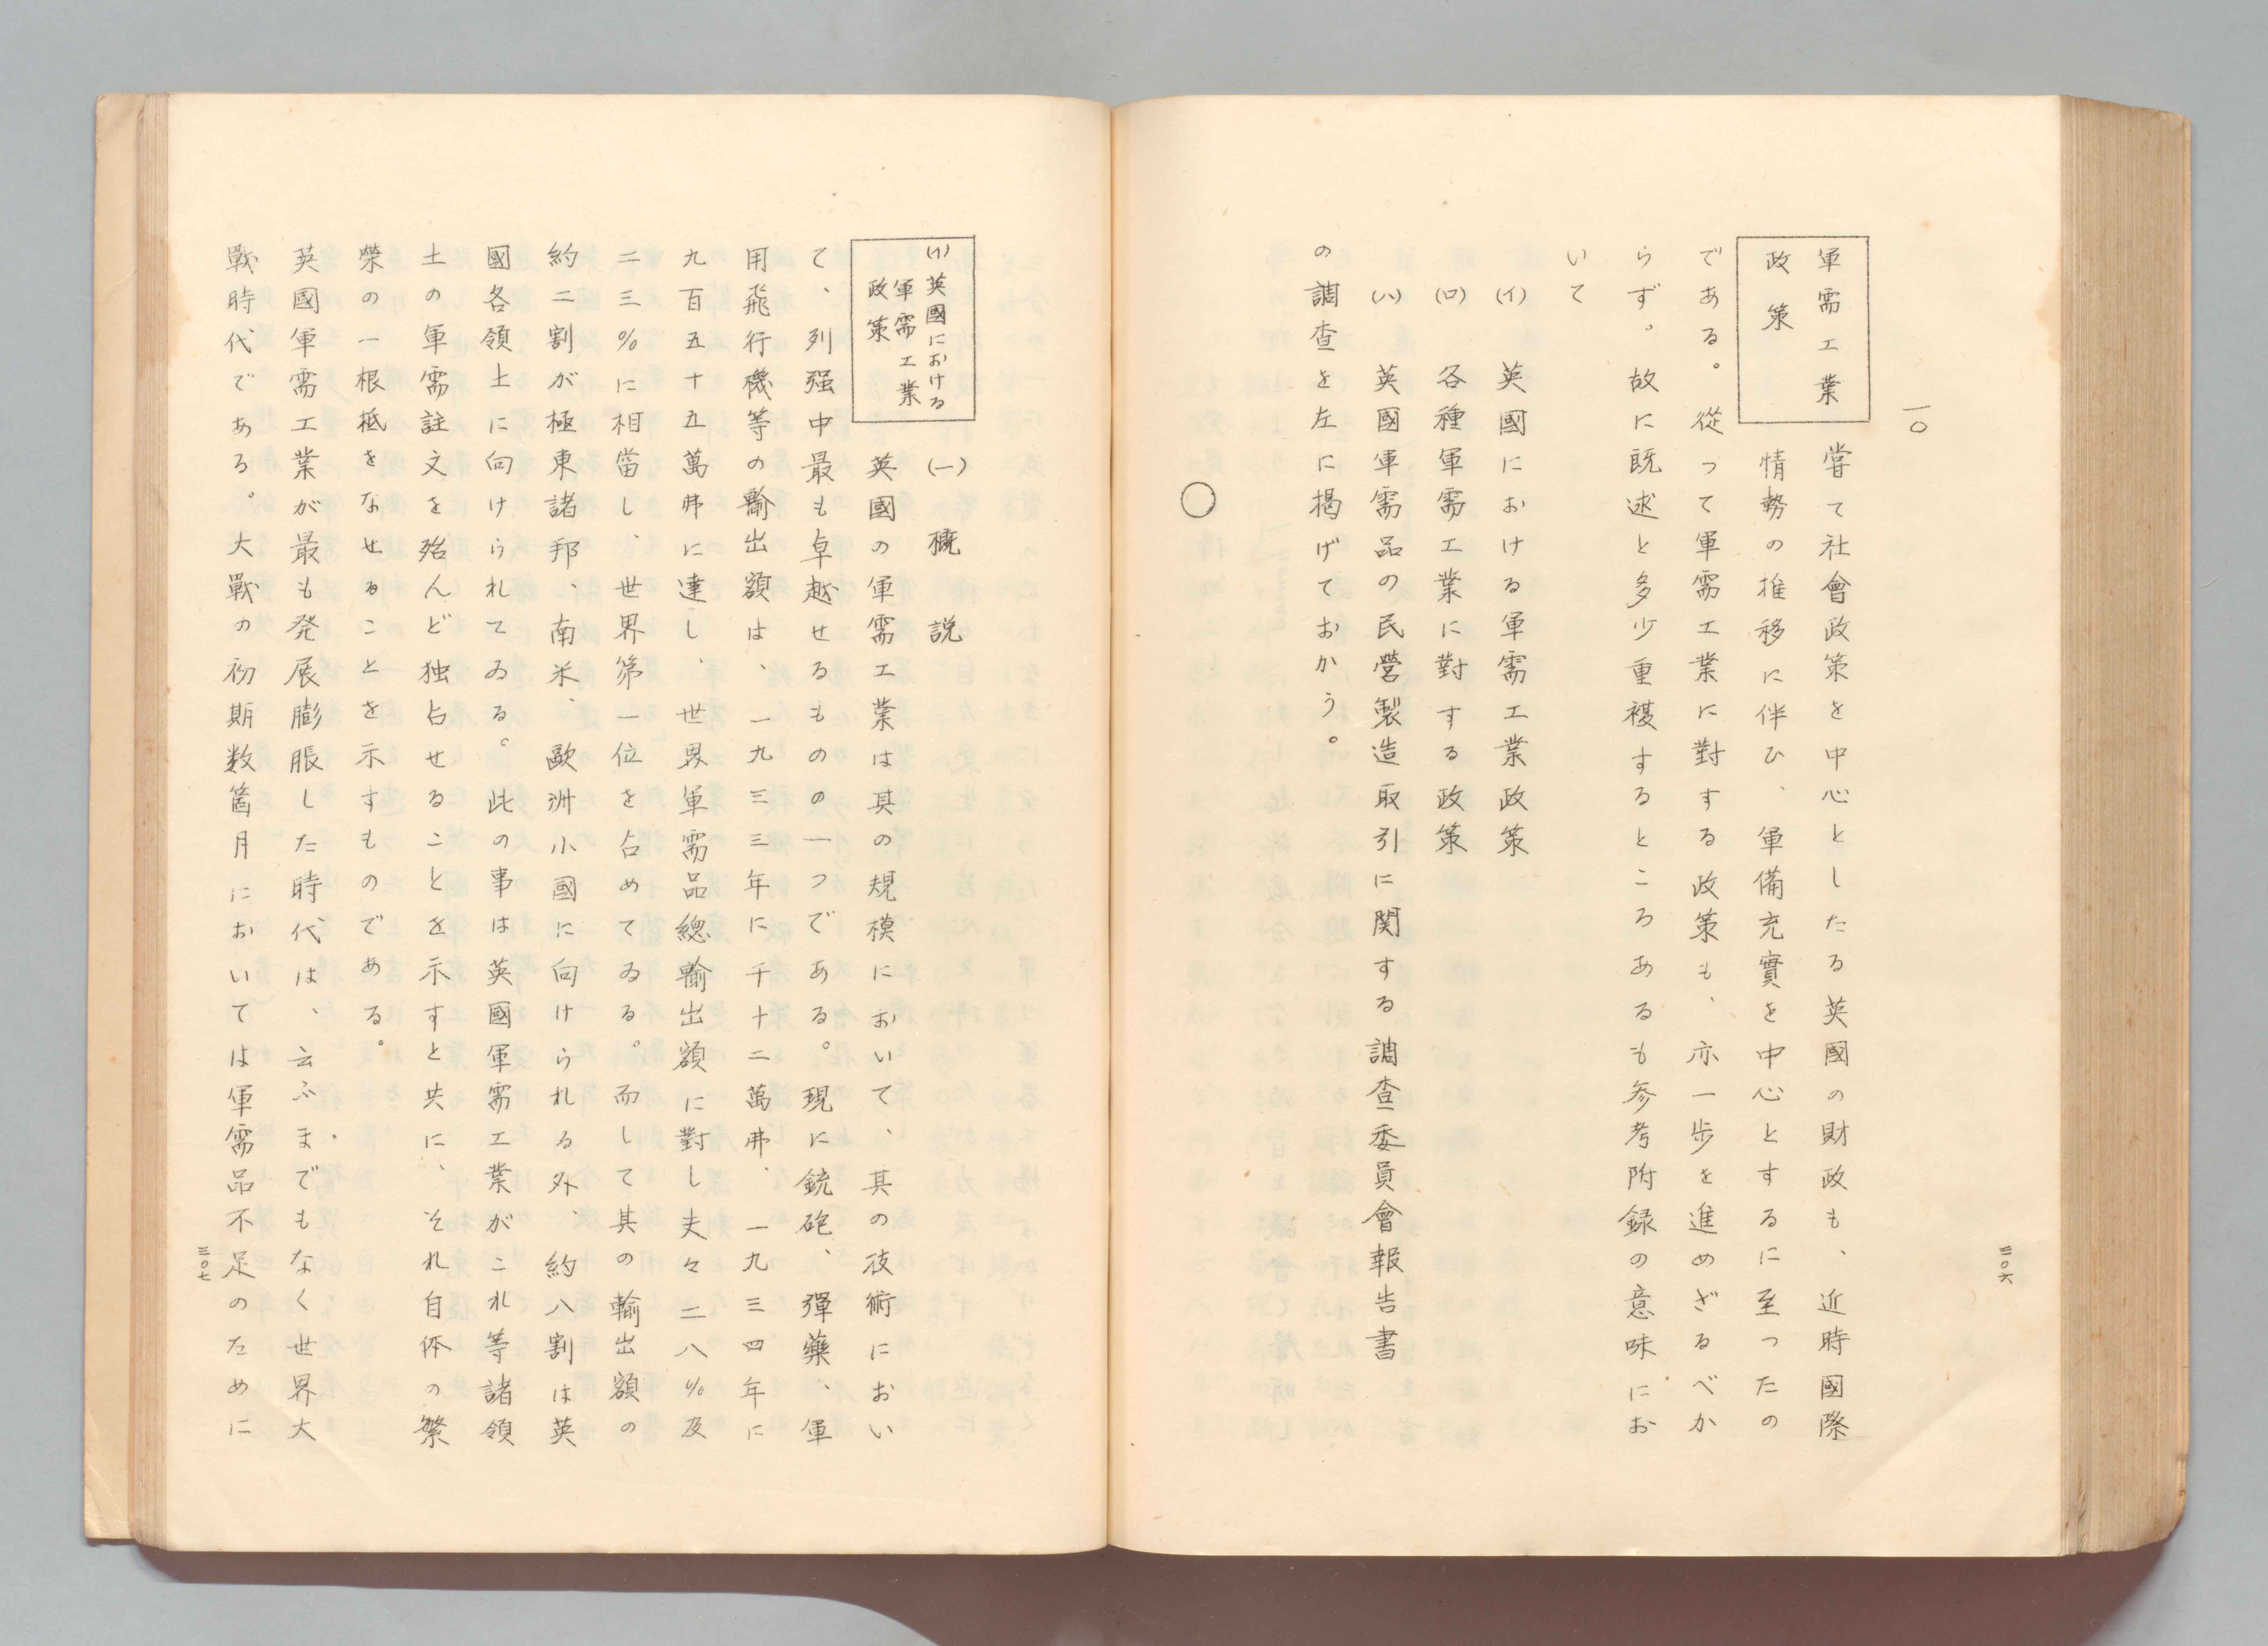 一〇
軍需工業
政策
嘗て社會政策を中心としたる英國の財政も、近時國際
情勢の推移に伴ひ、軍備充實を中心とするに至つたの
である。從つて軍需工業に對する政策も、亦一歩を進めざるべか
らず。故に既述と多少重複するところあるも参考附録の意味にお
いて
(イ) 英國における軍需工業政策
(ロ) 各種軍需工業に對する政策
(ハ) 英國軍需品の民營製造取引に関する調査委員會報告書
の調査を左に揭げておかう。
〇
三〇六
(イ)英國における
軍需工業
政策
(一) 概説
英國の軍需工業は其の規模において、其の技術におい
て、列强中最も卓越せるものの一つである。現に銃砲、彈藥、軍
用飛行機等の輸出額は、一九三三年に千十二萬弗、一九三四年に
九百五十五萬弗に達し、世界軍需品總輸出額に對し夫々二八％及
二三％に相當し、世界第一位を占めてゐる。而して其の輸出額の
約二割が極東諸邦、南米、歐洲小國に向けられる外、約八割は英
國各領土に向けられてゐる。此の事は英國軍需工業がこれ等諸領
土の軍需註文を殆んど独占せることを示すと共に、それ自体の繁
榮の一根抵をなせることを示すものである。
英國軍需工業が最も発展膨脹した時代は、云ふまでもなく世界大
戰時代である。大戰の初期数箇月においては軍需品不足のために
三〇七